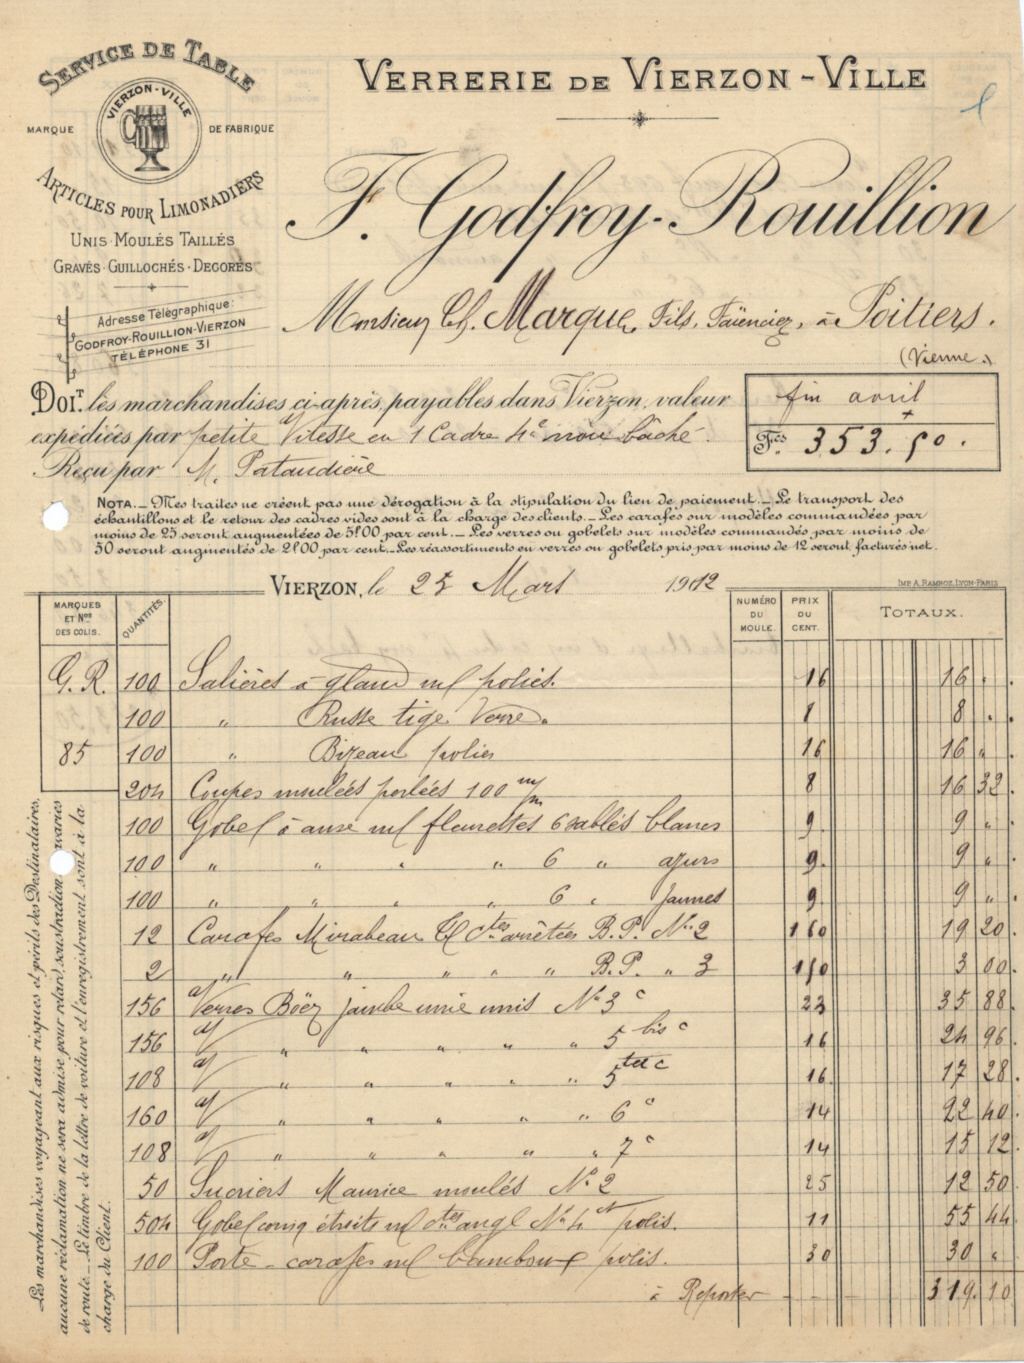 SERVICE DE TABLE
VIERZON-VILLE
MARQUE DE FABRIQUE
ARTICLES POUR LIMONADIERS
UNIS·MOULÉS TAILLÉS
GRAVÉS·GUILLOCHÉS·DECORÉS
Adresse Télégraphique:
GODFROY-ROUILLION-VIERZON
TÉLÉPHONE 31
VERRERIE DE VIERZON-VILLE
F. Godfroy-Rouillion
Monsieur Ch. Marque, Fils, Faïencier, à Poitiers.
(Vienne.)
DOIT. les marchandises ci-après, payables dans Vierzon, valeur
fin avril
expédiées par petite Vitesse en 1 Cadre bâché.
Fcs 353.50.
Reçu par M. Pataudière
NOTA.— Mes traites ne créent pas une dérogation à la stipulation du lien de paiement.— Le transport des
échantillons et le retour des cadres vides sont à la charge des clients.— Les carafes sur modèles commandées par
moins de 25 seront augmentées de 5f.00 par cent.— Les verres ou gobelets sur modèles commandés par moins de
50 seront augmentés de 2f.00 par cent.— Les réassortiments en verres ou gobelets pris par moins de 12 seront facturés net.
VIERZON, le 25 Mars 1912
IMP. A. RAMBOZ, LYON-PARIS
MARQUES ET Nos DES COLIS. QUANTITÉS. NUMÉRO DU MOULE. PRIX DU CENT. TOTAUX.
G.R. 100 Salières à gland polies. 16 16 "
100 " Russe tige Verre. 8 8 "
85 100 " Bizeau polies 16 16 "
204 Coupes moulées perlées 100 m/m 8 16 32
100 Gobel à anse ml fleurettes 6 sablés blancs 9 9 "
100 " " " " 6 " azurs 9 9 "
100 " " " " 6 " jaunes 9 9 "
12 Carafes Mirabeau ctes arrêtées B.P. No 2 160 19 20
2 " " " " " B.P. " 3 150 3 00
156 Verres Böez jambe unie unis No 3 c 23 35 88
156 " " " " " 5 bis c 16 24 96
108 " " " " " 5 ter c 16 17 28
160 " " " " " 6 c 14 22 40
108 " " " " " 7 c 14 15 12
50 Sucriers Maurice moulés No 2 25 12 50
504 Gobel coniq étroits ml ctes angl No 4 polis. 11 55 44
100 Porte-carafes ml bambou polis. 30 30 "
à Reporter 319.10
Les marchandises voyageant aux risques et périls des Destinataires,
aucune réclamation ne sera admise pour retard, soustraction avaries
de route.— Le timbre de la lettre de voiture et l'enregistrement sont à la
charge du Client.